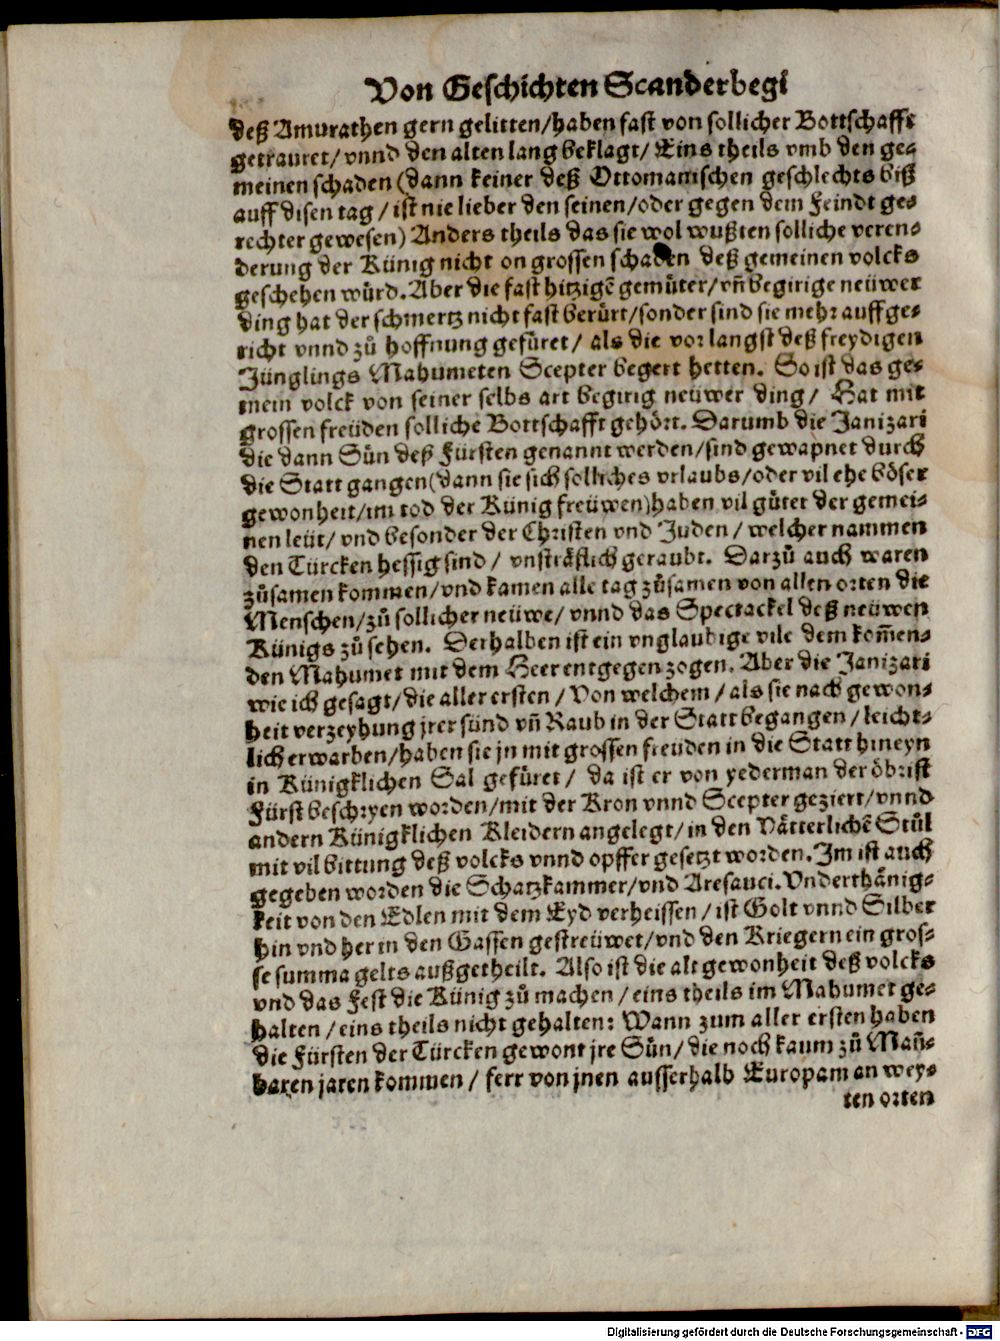 Von Geschichten Scanderbegi
deß Amurathen gern gelitten/haben fast von sollicher Bottschafft
getrauret/vnnd den alten lang beklagt/Eins theils vmb den ge-
meinen schaden (dann keiner deß Ottomanischen geschlechts biß
auff disen tag/ist nie lieber den seinen/oder gegen dem Feindt ge-
rechter gewesen) Anders theils das sie wol wußten solliche veren-
derung der Künig nicht on grossen schaden deß gemeinen volcks
geschehen würd. Aber die fast hitzigē gemüter/vñ begirige neüwer
ding hat der schmertz nicht fast berürt/sonder sind sie mehr auffge-
richt vnnd zů hoffnung gefüret/als die vor langst deß freydigen
Jünglings Mahumeten Scepter begert hetten. So ist das ge-
mein volck von seiner selbs art begirig neüwer ding/Hat mit
grossen freüden solliche Bottschafft gehört. Darumb die Janizari
die dann Sün deß Fürsten genannt werden/sind gewapnet durch
die Statt gangen (dann sie sich solliches vrlaubs/oder vil ehe böser
gewonheit/im tod der Künig freüwen) haben vil güter der gemei-
nen leüt/vnd besonder der Christen vnd Juden/welcher nammen
den Türcken hessig sind/vnsträflich geraubt. Darzů auch waren
zůsamen kommen/vnd kamen alle tag zůsamen von allen orten die
Menschen/zů sollicher neüwe/vnnd das Spectackel deß neüwen
Künigs zů sehen. Derhalben ist ein vnglaubige vile dem kom̄en-
den Mahumet mit dem Heer entgegen zogen. Aber die Janizari
wie ich gesagt/die aller ersten/Von welchem/als sie nach gewon-
heit verzeyhung jrer sünd vñ Raub in der Statt begangen/leicht-
lich erwarben/haben sie jn mit grossen freuden in die Statt hineyn
in Künigklichen Sal gefüret/da ist er von yederman der öbrist
Fürst beschryen worden/mit der Kron vnnd Scepter geziert/vnnd
andern Künigklichen Kleidern angelegt/in den Vätterlichē Stůl
mit vil bittung deß volcks vnnd opffer gesetzt worden. Im ist auch
gegeben worden die Schatzkammer/vnd Aresauci. Vnderthänig-
keit von den Edlen mit dem Eyd verheissen/ist Golt vnnd Silber
hin vnd her in den Gassen gestreüwet/vnd den Kriegern ein gros-
se summa gelts außgetheilt. Also ist die alt gewonheit deß volcks
vnd das Fest die Künig zů machen/eins theils im Mahumet ge-
halten/eins theils nicht gehalten: Wann zum aller ersten haben
die Fürsten der Türcken gewont jre Sün/die noch kaum zů Mañ-
baren jaren kommen/ferr von jnen ausserhalb Europam an wey-
ten orten
Digitalisierung gefördert durch die Deutsche Forschungsgemeinschaft - DFG